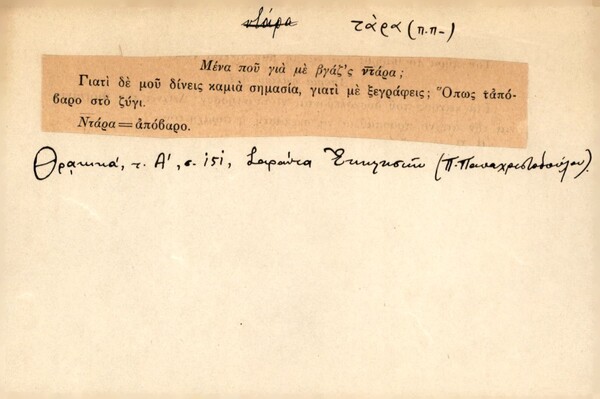 ντάρα τάρα (π.π-)
Μένα ποῦ γιὰ μὲ βγάζ'ς ν̅τάρα ;
Γιατὶ δὲ μοῦ δίνεις καμιὰ σημασία, γιατὶ μὲ ξεγράφεις ; Ὅπως τἀπό-
βαρο στὸ ζύγι.
Ντάρα = ἀπόβαρο.
Θρᾳκικά, τ. Α', σ. 151, Σαράντα Ἐκκλησιῶν (Π. Παπαχριστοδούλου).